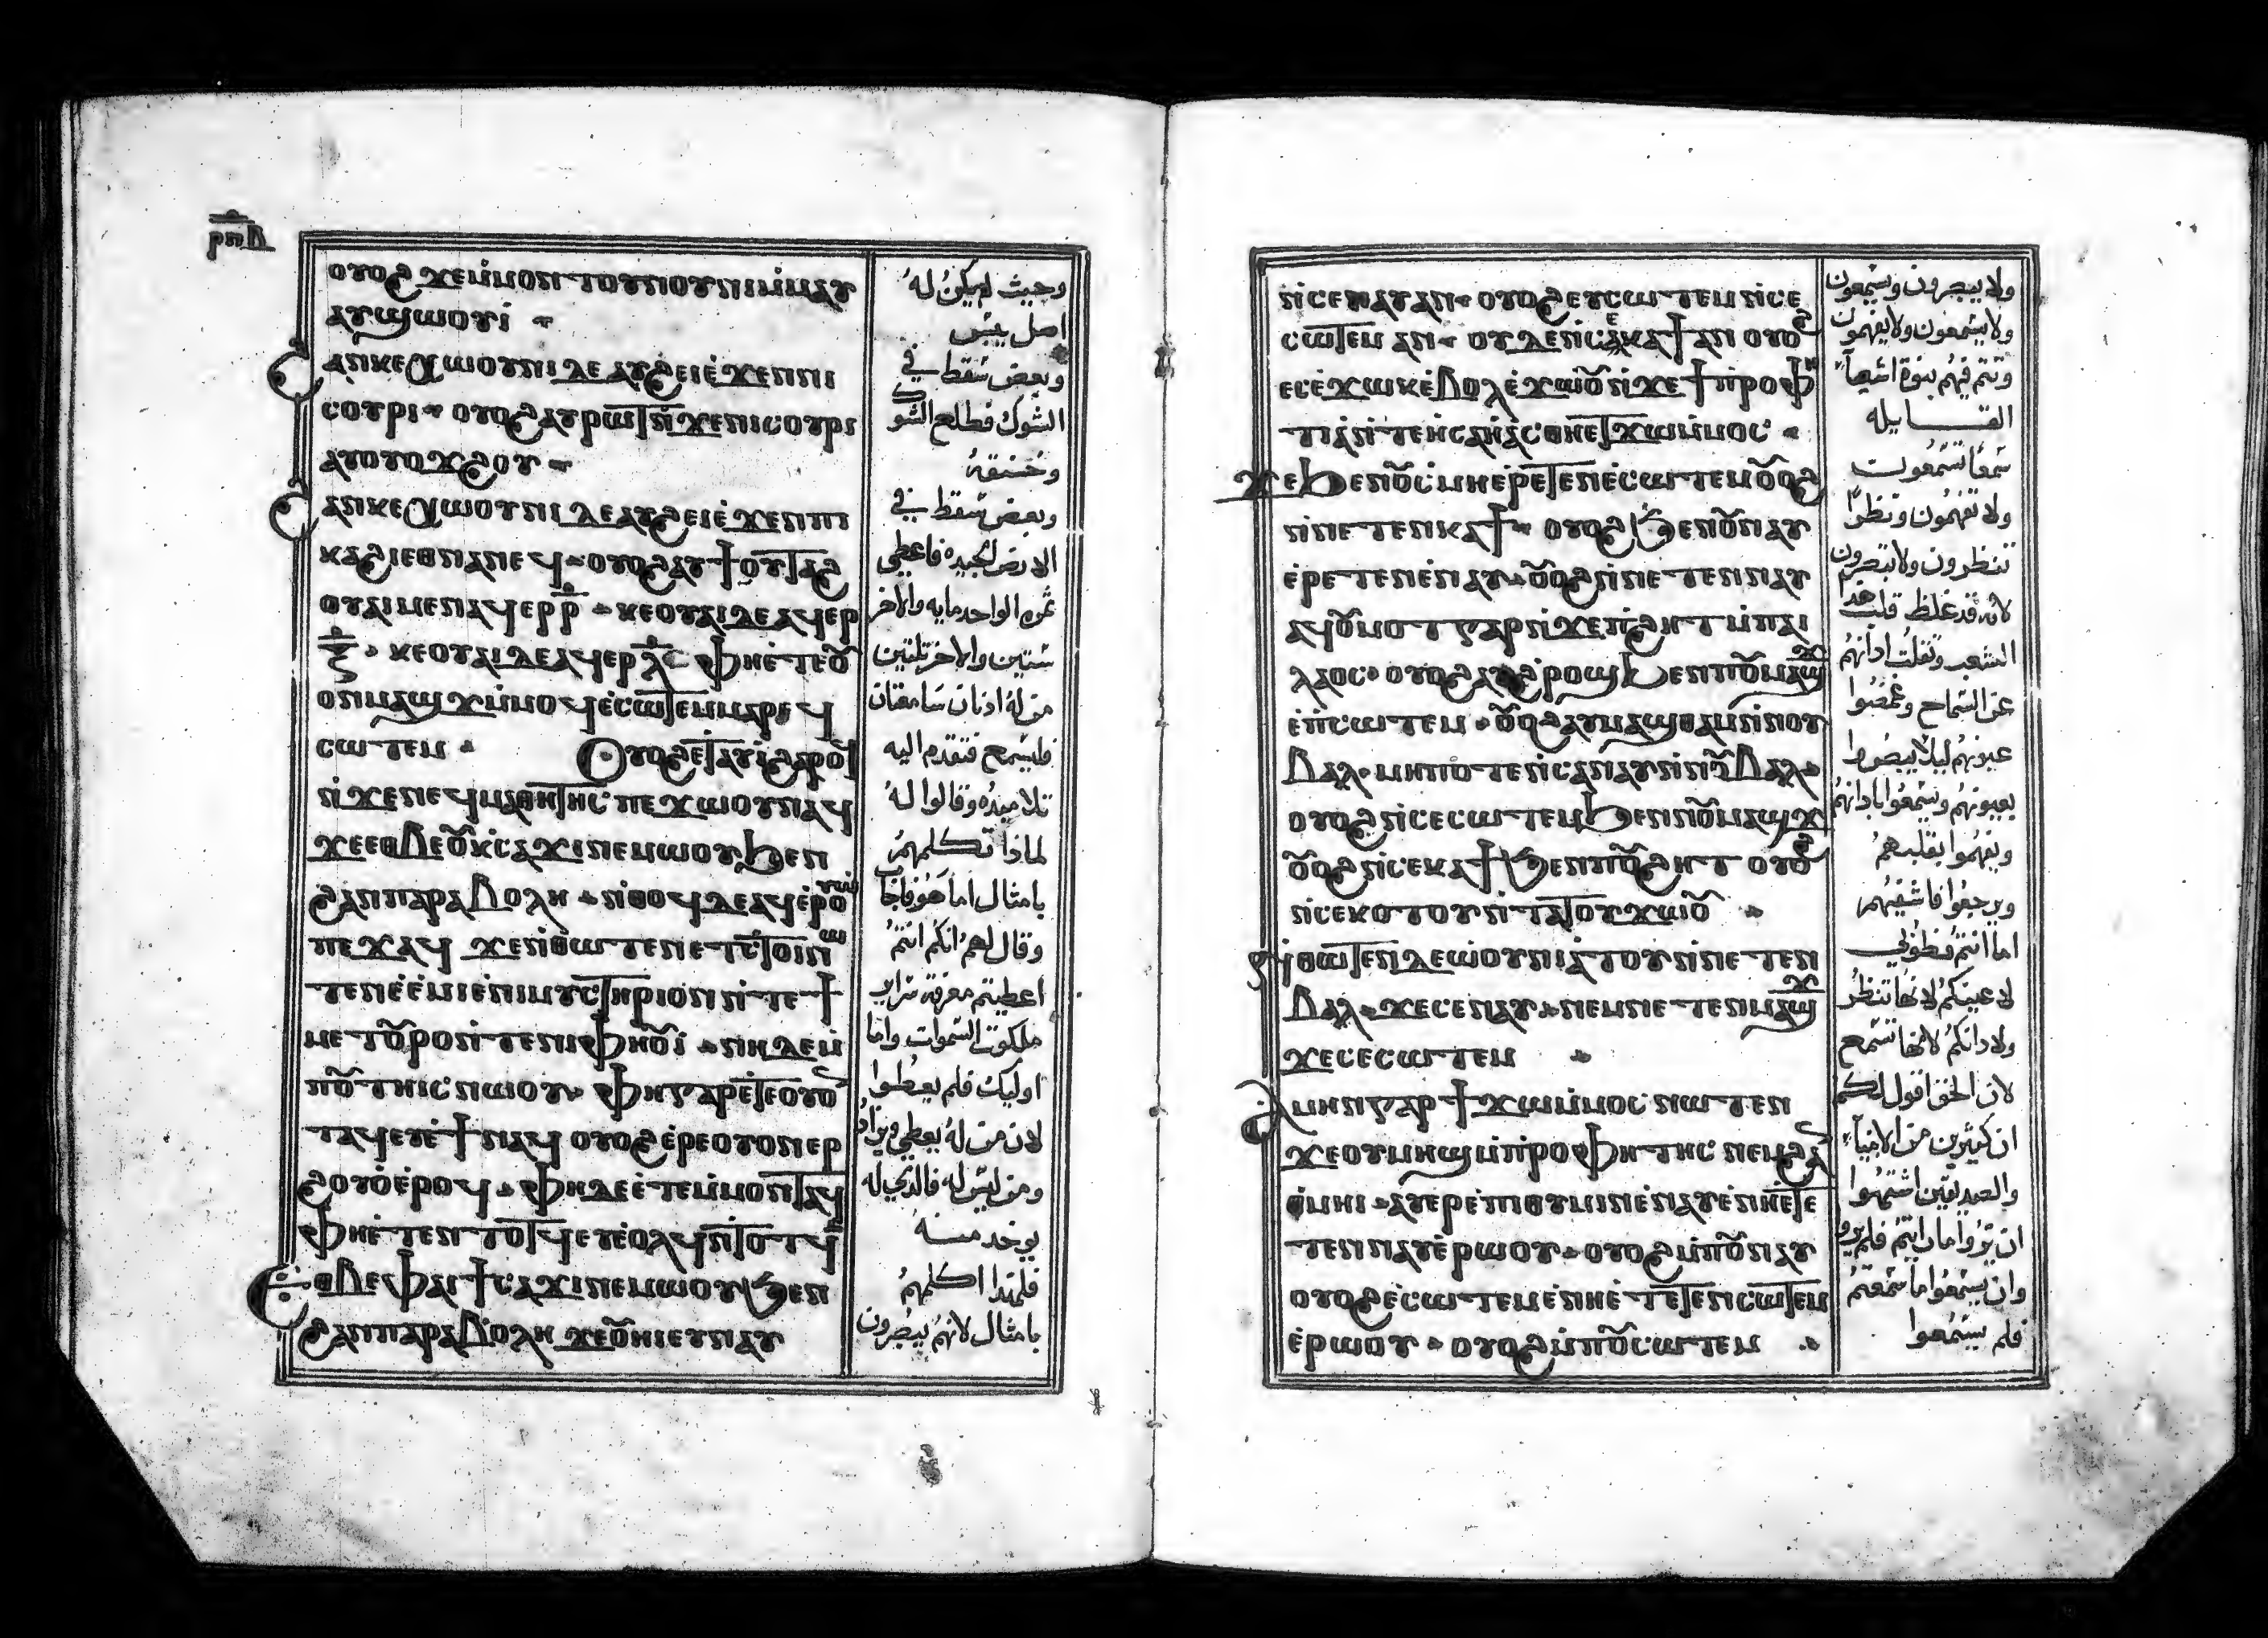 ⲣⲡⲃ
ⲟⲩⲟϩ ϫⲉ ⲙ̇ⲙⲟⲛ ⲧⲟⲩⲛⲟⲩⲛⲓ ⲙ̇ⲙⲁⲩ
ⲁⲩϣⲱⲟⲩⲓ̇
ϩⲁⲛⲕⲉⲭⲱⲟⲩⲛⲓ ⲇⲉ ⲁⲩϩⲉⲓ ⲉ̇ϫⲉⲛ ⲛⲓ
ⲥⲟⲩⲣⲓ ⲟⲩⲟϩ ⲁⲩⲣⲱⲧ ⲛ̇ϫⲉ ⲛⲓⲥⲟⲩⲣⲓ
ⲁⲩⲟⲩⲟϫϩⲟⲩ
ϩⲁⲛⲕⲉⲭⲱⲟⲩⲛⲓ ⲇⲉ ⲁⲩϩⲉⲓ ⲉ̇ϫⲉⲛ ⲡⲓ
ⲕⲁϩⲓ ⲉⲑⲛⲁⲛⲉϥ ⲟⲩⲟϩ ⲁⲩϯ ⲟⲩⲧⲁϩ
ⲟⲩⲁⲓ ⲙⲉⲛ ⲁϥⲉⲣ ⲣ̅ ⲕⲉⲟⲩⲁⲓ ⲇⲉ ⲁϥⲉⲣ
ⲝ̅ ⲕⲉⲟⲩⲁⲓ ⲇⲉ ⲁϥⲉⲣ ⲗ̅ ⲫⲏⲉ̇ⲧⲉⲟⲩ
ⲟⲛ ⲙⲁϣϫ ⲙ̇ⲙⲟϥ ⲉ̇ⲥⲱⲧⲉⲙ ⲙⲁⲣⲉϥ
ⲥⲱⲧⲉⲙ Ⲟⲩⲟϩ ⲉⲧⲁⲩⲓ̇ ϩⲁⲣⲟϥ
ⲛ̇ϫⲉ ⲛⲉϥⲙⲁⲑⲏⲧⲏⲥ ⲡⲉϫⲱⲟⲩ ⲛⲁϥ
ϫⲉ ⲉⲑⲃⲉⲟⲩ ⲕ̇ⲥⲁϫⲓ ⲛⲉⲙⲱⲟⲩ ϧⲉⲛ
ϩⲁⲛⲡⲁⲣⲁⲃⲟⲗⲏ ⲛ̇ⲑⲟϥ ⲇⲉ ⲁϥⲉ̇ⲣⲟⲩⲱ
ⲡⲉϫⲁϥ ϫⲉ ⲛ̇ⲑⲱⲧⲉⲛ ⲡⲉⲧⲥ̇ⲧⲟⲓ ⲛⲱ
ⲧⲉⲛ ⲉ̇ⲉ̇ⲙⲓ ⲉ̇ⲛⲓⲙⲩⲥⲧⲏⲣⲓⲟⲛ ⲛ̇ⲧⲉ ϯ
ⲙⲉⲧⲟⲩⲣⲟ ⲛ̇ⲧⲉ ⲛⲓⲫⲏⲟⲩⲓ̇ ⲛⲏ ⲇⲉ ⲙ̇
ⲡⲟⲩⲧⲏⲓⲥ ⲛⲱⲟⲩ ⲫⲏ ⲅⲁⲣ ⲉⲧⲉ ⲟⲩⲟ
ⲧⲁϥ ⲉⲩⲉ̇ϯ ⲛⲁϥ ⲟⲩⲟϩ ⲉ̇ⲣⲉ ⲟⲩⲟⲛ ⲉⲣ
ϩⲟⲩⲟ̇ ⲉ̇ⲣⲟϥ ⲫⲏ ⲇⲉ ⲉ̇ⲧⲉ ⲙ̇ⲙⲟⲛⲧⲁϥ
ⲫⲏⲉ̇ⲧⲉⲛⲧⲟⲧϥ ⲉⲩⲉ̇ⲟⲗϥ ⲛ̇ⲧⲟⲧϥ
ⲉⲑⲃⲉ ⲫⲁⲓ ϯⲥⲁϫⲓ ⲛⲉⲙⲱⲟⲩ ϧⲉⲛ
ϩⲁⲛⲡⲁⲣⲁⲃⲟⲗⲏ ϫⲉ ⲟⲩⲏⲓ ⲉⲩⲛⲁⲩ
وحيث لم يكن له
اصل يبس
وبعض سقط في
الشوك فطلع الشوك
وخنقه
وبعض سقط في
الارض الجيده فاعطى
ثمره الواحد مايه والاخر
ستين والاخر ثلثين
من له اذنان سامعتان
فليسمع فتقدم اليه
تلاميذه وقالوا له
لماذا تكلمهم
بامثال اما هو فاجاب
وقال لهم انكم انتم
اعطيتم معرفة سراير
ملكوت السموات واما
اوليك فلم يعطوا
لان من له يعطي ويزاد
ومن ليس له فالذي له
يوخد منه
فلهذا اكلمهم
بامثال لانهم يبصرون
ⲛ̇ⲥⲉⲛⲁⲩ ⲁⲛ ⲟⲩⲟϩ ⲉⲩⲥⲱⲧⲉⲙ ⲛ̇ⲥⲉ
ⲥⲱⲧⲉⲙ ⲁⲛ ⲟⲩⲇⲉ ⲛ̇ⲥⲉⲕⲁϯ ⲁⲛ ⲟⲩⲟϩ
ⲉⲥⲉ̇ϫⲱⲕ ⲉ̇ⲃⲟⲗ ⲉ̇ϫⲱⲟⲩ ⲛ̇ϫⲉ ϯⲡ̇ⲣⲟⲫⲏ
ⲧⲓⲁ̇ ⲛ̇ⲧⲉ ⲏⲥⲁⲏ̇ⲁⲥ ⲑⲏⲉⲧϫⲱ ⲙ̇ⲙⲟⲥ
ϫⲉ ϧⲉⲛ ⲟⲩⲥ̇ⲙⲏ ⲉ̇ⲣⲉⲧⲉⲛⲉ̇ⲥⲱⲧⲉⲙ ⲟⲩⲟϩ
ⲛ̇ⲛⲉⲧⲉⲛⲕⲁϯ ⲟⲩⲟϩ ϧⲉⲛ ⲟⲩⲛⲁⲩ
ⲉ̇ⲣⲉⲧⲉⲛⲉ̇ⲛⲁⲩ ⲟⲩⲟϩ ⲛ̇ⲛⲉⲧⲉⲛⲛⲁⲩ
ⲁϥⲟⲩⲙⲟⲧ ⲅⲁⲣ ⲛ̇ϫⲉ ⲡ̇ϩⲏⲧ ⲙ̇ⲡⲁⲓ
ⲗⲁⲟⲥ ⲟⲩⲟϩ ⲁⲩϩ̇ⲣⲟϣ ϧⲉⲛ ⲛⲟⲩⲙⲁϣϫ
ⲉ̇ⲡ̇ⲥⲱⲧⲉⲙ ⲟⲩⲟϩ ⲁⲩⲙⲁϣⲑⲁⲙ ⲛ̇ⲛⲟⲩ
ⲃⲁⲗ ⲙⲏⲡⲟⲧⲉ ⲛ̇ⲥⲉⲛⲁⲩ ⲛ̇ⲛⲟⲩⲃⲁⲗ
ⲟⲩⲟϩ ⲛ̇ⲥⲉⲥⲱⲧⲉⲙ ϧⲉⲛ ⲛⲟⲩⲙⲁϣϫ
ⲟⲩⲟϩ ⲛ̇ⲥⲉⲕⲁϯ ϧⲉⲛ ⲡⲟⲩϩⲏⲧ ⲟⲩⲟϩ
ⲛ̇ⲥⲉⲕⲟⲧⲟⲩ ⲛ̇ⲧⲁⲧⲟⲩϫⲱⲟⲩ
ⲛ̇ⲑⲱⲧⲉⲛ ⲇⲉ ⲱ̇ⲟⲩⲛⲓⲁ̇ⲧⲟⲩ ⲛ̇ⲛⲉⲧⲉⲛ
ⲃⲁⲗ ϫⲉ ⲥⲉⲛⲁⲩ ⲛⲉⲙ ⲛⲉⲧⲉⲛⲙⲁϣϫ
ϫⲉ ⲥⲉⲥⲱⲧⲉⲙ
ⲁⲙⲏⲛ ⲅⲁⲣ ϯϫⲱ ⲙ̇ⲙⲟⲥ ⲛⲱⲧⲉⲛ
ϫⲉ ⲟⲩⲙⲏϣ ⲙ̇ⲡ̇ⲣⲟⲫⲏⲧⲏⲥ ⲛⲉⲙ ϩⲁⲛ
ⲑ̇ⲙⲏⲓ ⲁⲩⲉⲣⲉ̇ⲡⲓⲑⲩⲙⲓⲛ ⲉ̇ⲛⲁⲩ ⲉ̇ⲛⲏⲉ̇ⲧⲉ
ⲧⲉⲛⲛⲁⲩ ⲉ̇ⲣⲱⲟⲩ ⲟⲩⲟϩ ⲙ̇ⲡⲟⲩⲛⲁⲩ
ⲟⲩⲟϩ ⲉ̇ⲥⲱⲧⲉⲙ ⲉ̇ⲛⲏⲉ̇ⲧⲉⲧⲉⲛⲥⲱⲧⲉⲙ
ⲉ̇ⲣⲱⲟⲩ ⲟⲩⲟϩ ⲙ̇ⲡⲟⲩⲥⲱⲧⲉⲙ
ولا يبصرون ويسمعون
ولا يسمعون ولا يفهمون
وتتم فيهم نبوة اشعيا
القايله
سمعًا تسمعون
ولا تفهمون ونظرًا
تنظرون ولا تبصرون
لانه قد غلظ قلب هذا
الشعب وثقلت اذانهم
عن السماع وغمضوا
عيونهم ليلا يبصروا
بعيونهم ويسمعوا باذانهم
ويفهموا بقلبهم
ويرجعوا فاشفيهم
اما انتم فطوبى
لاعينكم لانها تنظر
ولاذانكم لانها تسمع
لان الحق اقول لكم
ان كثيرين من الانبيا
والصديقين اشتهوا
ان يروا ما رايتم فلم يروا
وان يسمعوا ما سمعتم
فلم يسمعوا